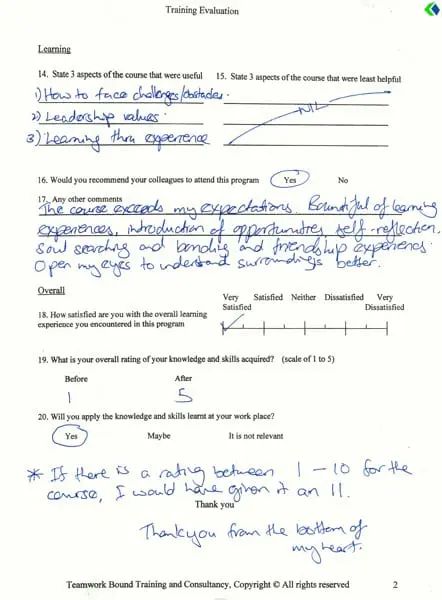 Training Evaluation
Learning
14. State 3 aspects of the course that were useful 15. State 3 aspects of the course that were least helpful
1) How to face challenges/obstacles.
2) Leadership values.
3) Learning thru experience
NIL
16. Would you recommend your colleagues to attend this program Yes No
17. Any other comments
The course exceeds my expectations. Bountiful of learning
experiences, introduction of opportunities, self-reflection,
soul searching and bonding and friendship experiences.
Open my eyes to understand surroundings better.
Overall
Very Satisfied Neither Dissatisfied Very
Satisfied Dissatisfied
18. How satisfied are you with the overall learning
experience you encountered in this program
19. What is your overall rating of your knowledge and skills acquired? (scale of 1 to 5)
Before After
1 5
20. Will you apply the knowledge and skills learnt at your work place?
Yes Maybe It is not relevant
* If there is a rating between 1 - 10 for the
course, I would have given it an 11.
Thank you
Thankyou from the bottom of
my heart.
Teamwork Bound Training and Consultancy, Copyright © All rights reserved 2